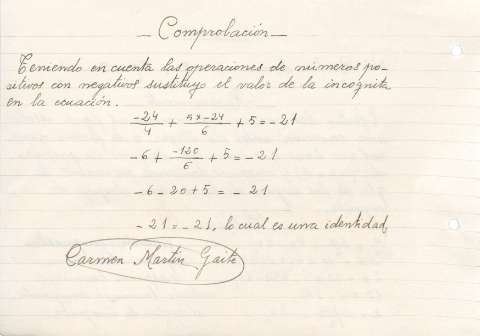 — Comprobación —
Teniendo en cuenta las operaciones de números po-
sitivos con negativos sustituyo el valor de la incognita
en la ecuación.
-24/4 + 5x-24/6 + 5 = -21
-6 + -120/6 + 5 = -21
-6 - 20 + 5 = - 21
- 21 = - 21, lo cual es una identidad,
Carmen Martín Gaite